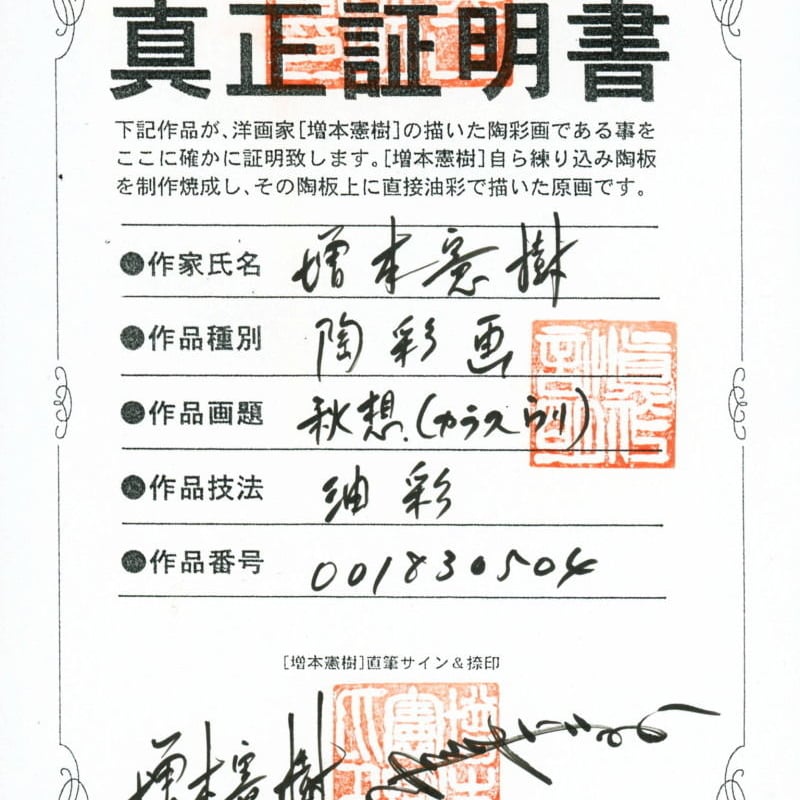 真正証明書
下記作品が、洋画家[増本憲樹]の描いた陶彩画である事を
ここに確かに証明致します。[増本憲樹]自ら練り込み陶板
を制作焼成し、その陶板上に直接油彩で描いた原画です。
●作家氏名 増本憲樹
●作品種別 陶彩画
●作品画題 秋想.(カラスウリ)
●作品技法 油彩
●作品番号 001830504
[増本憲樹]直筆サイン&捺印
増本憲樹